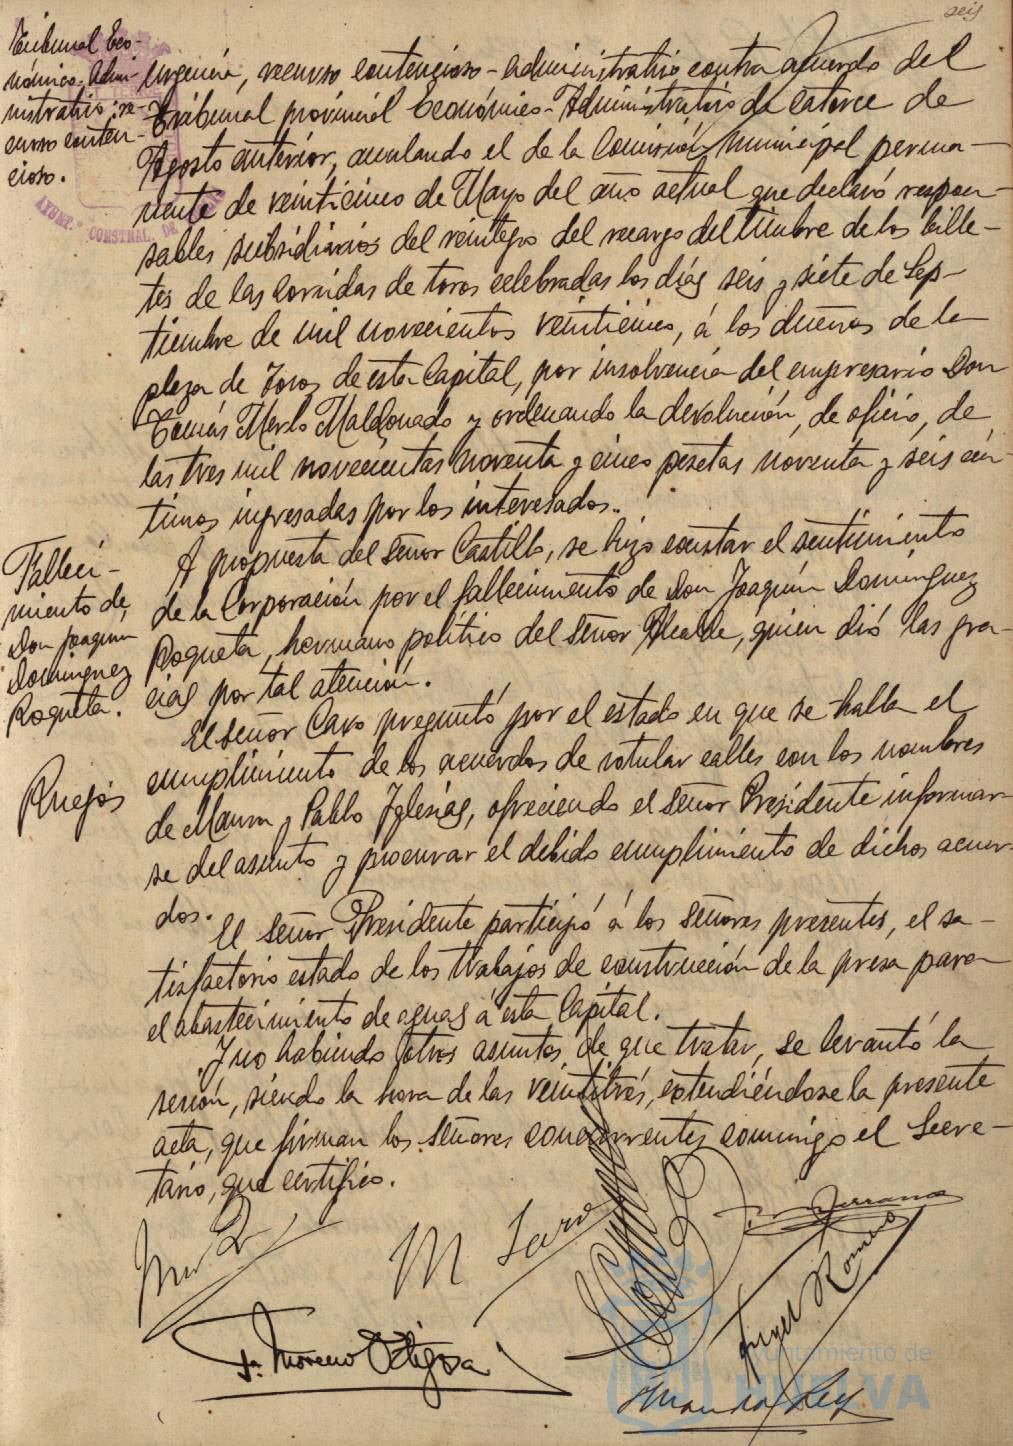 seis
Tribunal Eco-
nómico-Admi-
nistrativo, re-
curso conten-
cioso.
urgencia, recurso contencioso-administrativo contra acuerdo del
Tribunal provincial Económico-Administrativo de catorce de
Agosto anterior, anulando el de la Comisión Municipal perma-
nente de veinticinco de Mayo del año actual que declaró respon-
sables subsidiarios del reintegro del recargo del timbre de los bille-
tes de las corridas de toros celebradas los días seis y siete de Sep-
tiembre de mil novecientos veinticinco, á los dueños de la
plaza de Toros de esta Capital, por insolvencia del empresario Don
Tomás Merlo Maldonado y ordenando la devolución, de oficio, de
las tres mil novecientas noventa y cinco pesetas noventa y seis cén-
timos ingresadas por los interesados.
Falleci-
miento de
Don Joaquín
Domínguez
Roqueta.
A propuesta del Señor Castillo, se hizo constar el sentimiento
de la Corporación por el fallecimiento de Don Joaquín Domínguez
Roqueta, hermano político del Señor Alcalde, quien dió las gra-
cias por tal atención.
Ruegos
El Señor Caro preguntó por el estado en que se halla el
cumplimiento de los acuerdos de rotular calles con los nombres
de Maura y Pablo Iglesias, ofreciendo el Señor Presidente informar-
se del asunto y procurar el debido cumplimiento de dichos acuer-
dos.
El Señor Presidente participó á los Señores presentes, el sa-
tisfactorio estado de los trabajos de construcción de la presa para
el abastecimiento de aguas á esta Capital.
Y no habiendo otros asuntos de que tratar, se levantó la
sesión, siendo la hora de las veintitrés, extendiéndose la presente
acta, que firman los Señores concurrentes conmigo el Secre-
tario, que certifico.
Fr. Moreno Ortigosa
Angel Romero
Ayuntamiento de
HUELVA
AYUNT.º CONSTNAL. DE